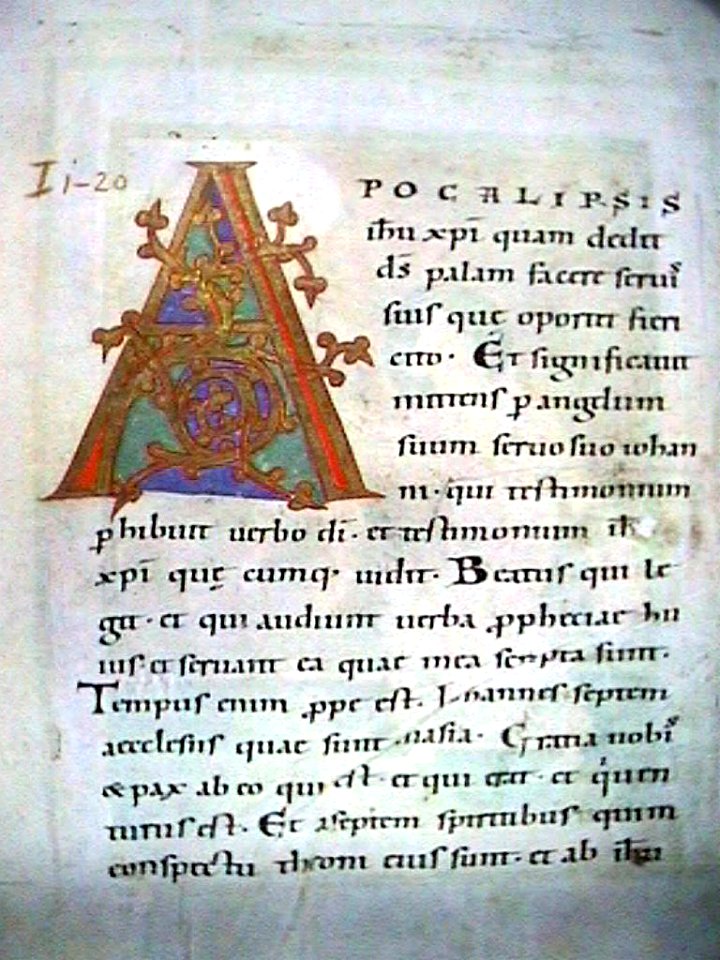 I i-20
APOCALIPSIS
ih̅u xp̅i quam dedit
d̅s palam facere serui^s
suis quę oportet fieri
cito · Et significauit
mittens p̱ angelum
suum seruo suo iohan
ni · qui testimonium
p̱hibuit uerbo d̅i · et testimonium ih̅
xp̅i quę cumq· uidit · Beatus qui le
git · et qui audiunt uerba ꝓphetiae hu
ius · et seruant ea quae in ea scripta sunt ·
Tempus enim ꝓpe est . Iohannes septem
aecclesiis quae sunt in asia · Gratia nobi^s
& pax ab eo qui est · et qui erat · et qui uen
turus est · Et a septem spiritibus qui in
conspectu throni eius sunt · et ab ih̅u